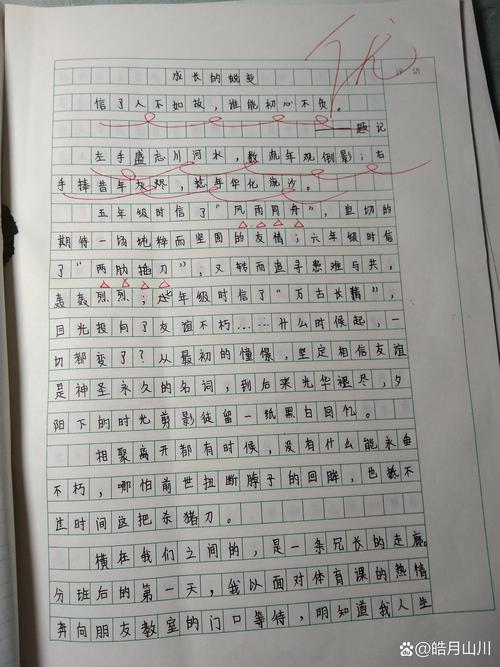 评语
优
成长的蜕变
信了人不如故，谁能初心不负。
——题记
左手盛忘川河水，数流年观倒影；右
手捧昔年灰烬，葬年华化流沙。
五年级时信了“风雨同舟”，直切的
期待一场纯粹而坚固的友情；六年级时信
了“两肋插刀”，又转而追寻患难与共，
轰轰烈烈；七年级时信了“万古长青”，
目光投向了友谊不朽……什么时候起，一
切都变了？从最初的憧憬，坚定相信友谊
是神圣永久的名词，到后来光华褪尽，夕
阳下的时光剪影徒留一纸黑白回忆。
相聚离开都有时候，没有什么能永垂
不朽，哪怕前世扭断脖子的回眸，也抵不
过时间这把杀猪刀。
横在我们之间的，是一条冗长的走廊。
分班后的第一天，我以面对体育课的热情
奔向朋友教室的门口等待，明知道我人生
@皓月山川